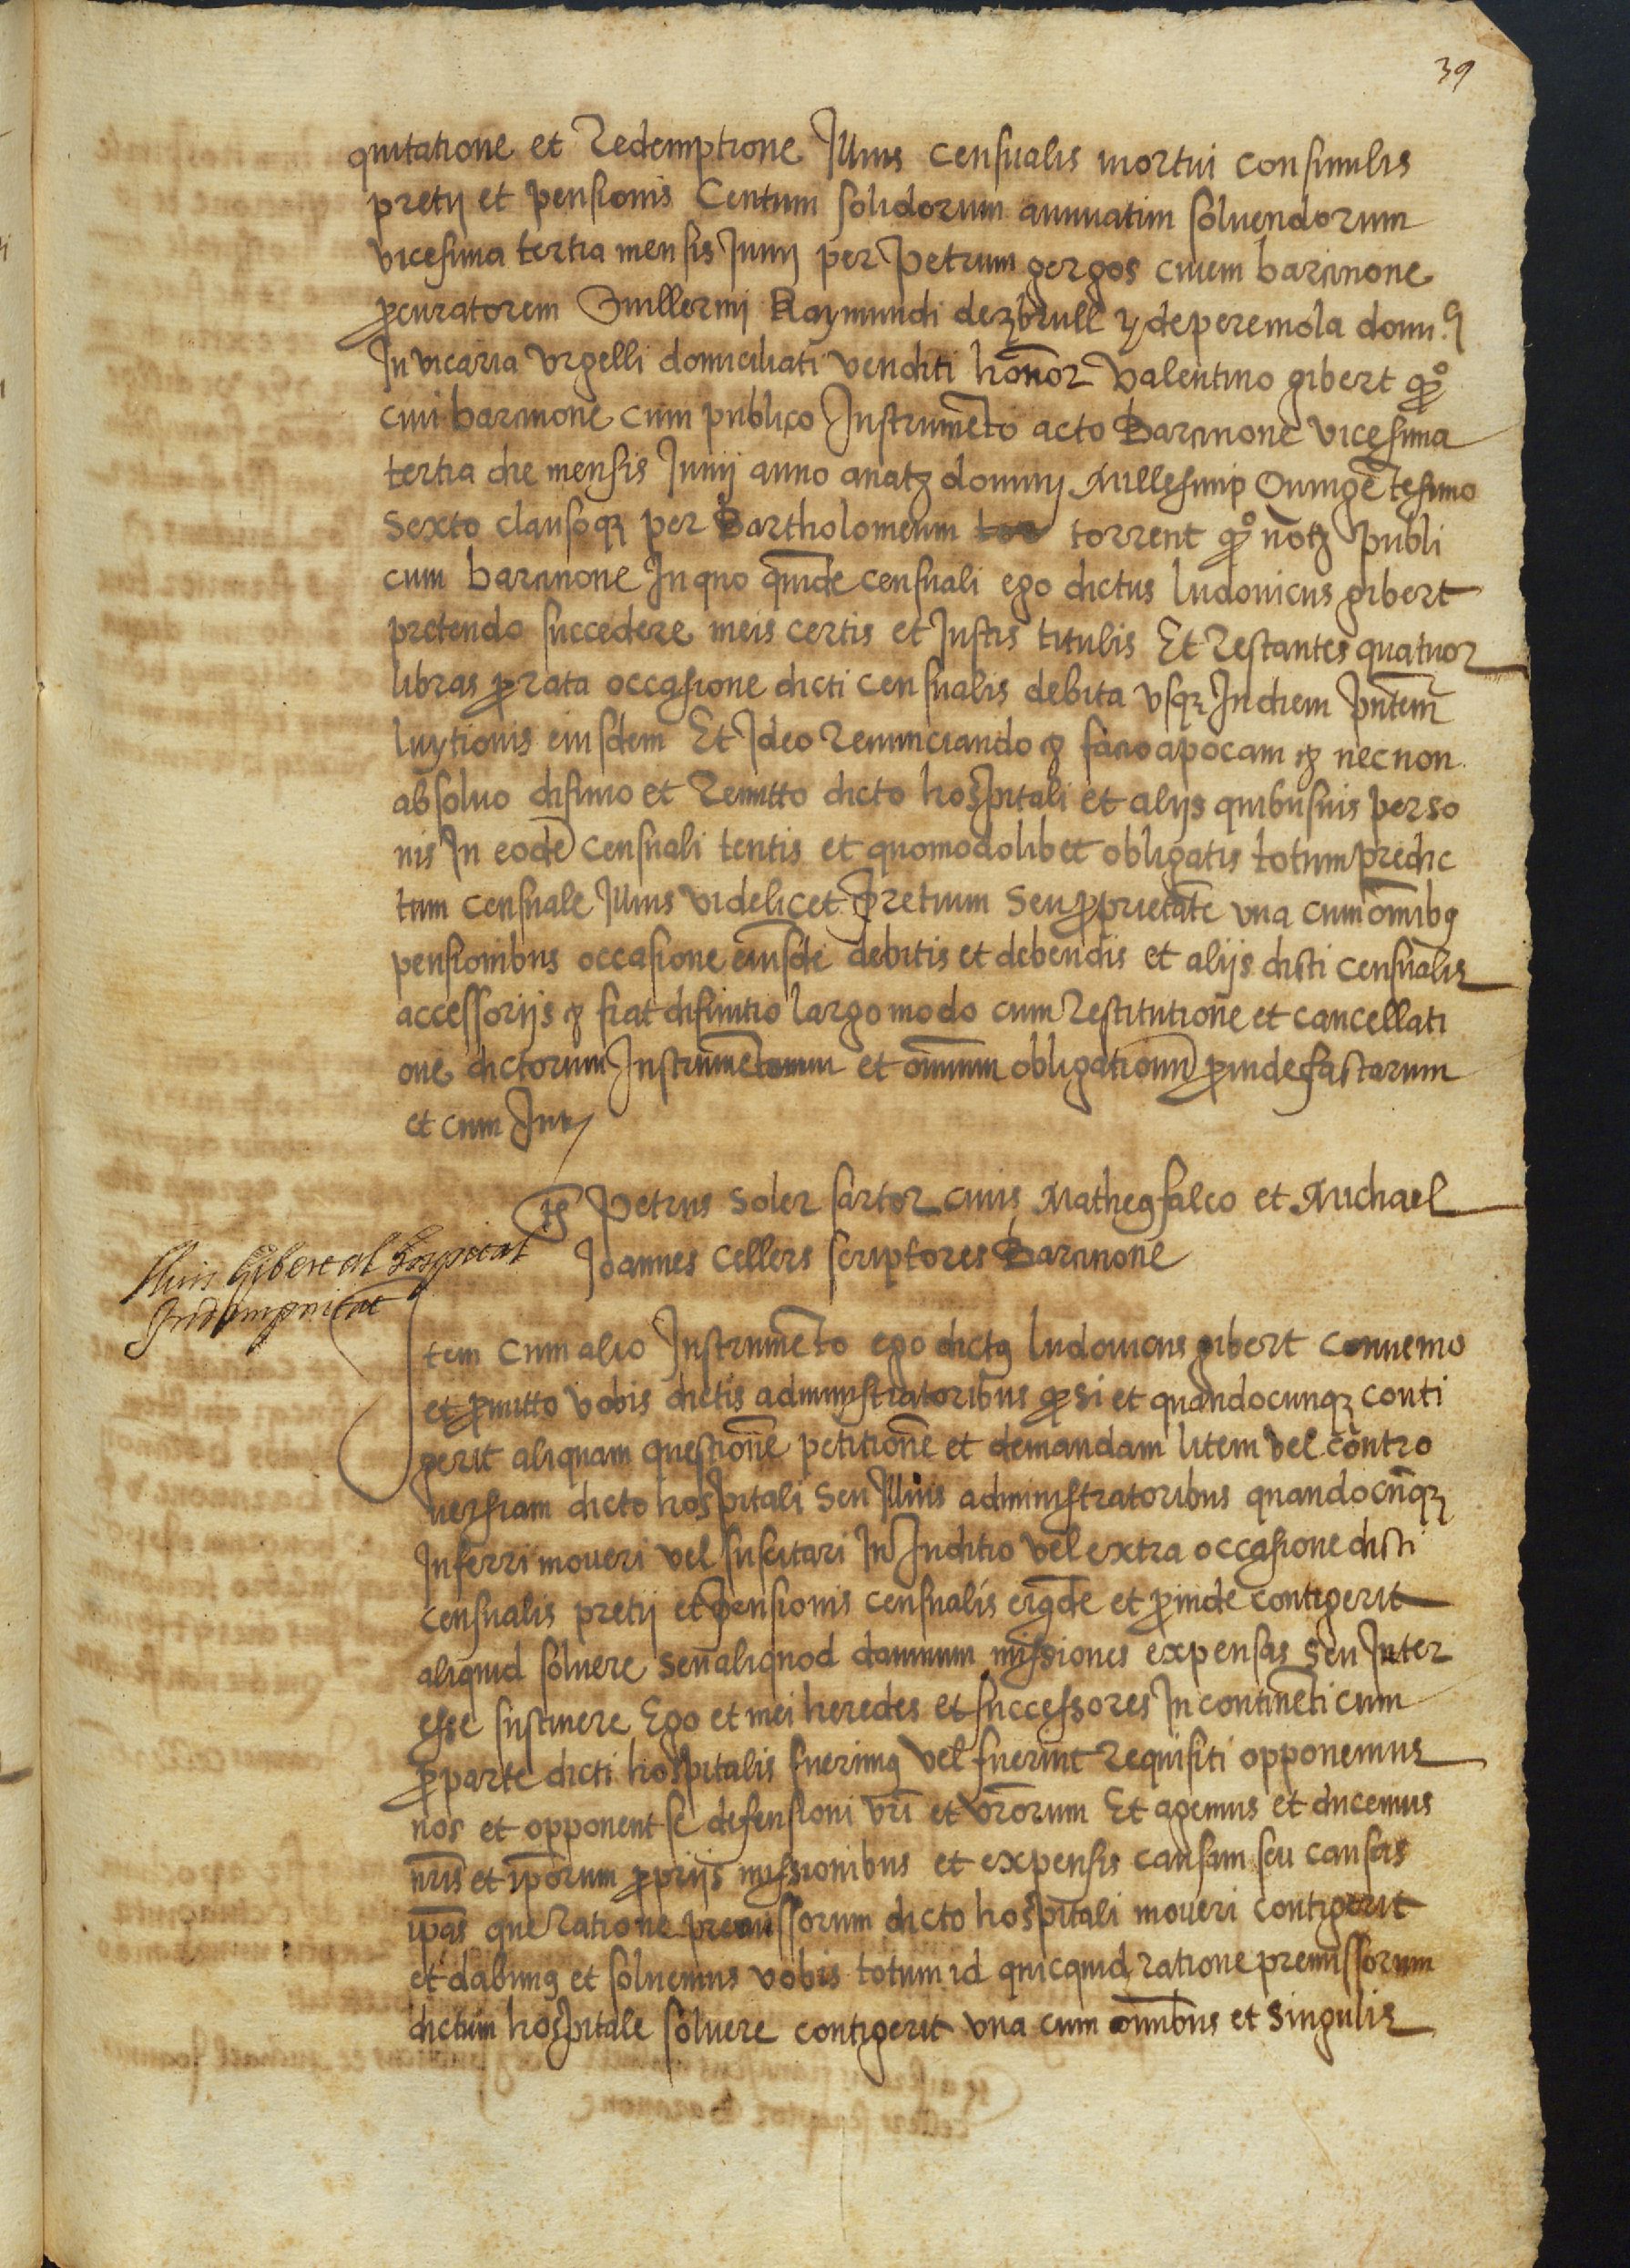 39
quitatione et Redemptione Illius censualis mortui consimilis
pretij et pensionis Centum solidorum annuatim soluendorum
vicesima tertia mensis Junij per petrum gergos ciuem barcinone
procuratorem Guillermi Raymundi dezbrull y de peremola domi
In vicaria vrgelli domiciliati venditi honor Valentino gibert qo
ciui barcinone cum publico Instrumēto acto Barcinone vicesima
tertia die mensis Junij anno a natz dominj Millesimo Quingētesimo
Sexto clausoqz per Bartholomeum tor torrent qo notz publi
cum barcinone In quo quidē censuali ego dictus ludouicus gibert
pretendo succedere meis certis et Justis titulis Et Restantes quatuor
libras prorata occasione dicti censualis debita vsqz In diem pntem
luytionis eiusdem Et Ideo Renunciando &c facio apocam &c necnon
absoluo difinio et Remitto dicto hospitali et alijs quibusuis perso
nis In eodē censuali tentis et quomodolibet obligatis totum predic
tum censuale Illius videlicet pretium Seu proprietatē vna cum omibq
pensionibus occasione eiusdē debitis et debendis et alijs dicti censualis
accessorijs &c fiat difinitio largo modo cum Restitutione et cancellati
one dictorum Instrumētorum et omnium obligationū proinde factarum
et cum Jur
ts Petrus Soler sartor ciuis Matheq falco et Michael
Joannes Cellers scriptores Barcinone
Lluis Gibert al Hospital
Indempnitat
Item cum alio Instrumēto ego dictq ludouicus gibert conuenio
et promitto vobis dictis administratoribus q si et quandocunqz conti
gerit aliquam questionē petitionē et demandam litem vel contro
uersiam dicto hospitali Seu Illius administratoribus quandocūqz
Inferri moueri vel suscitari In Juditio vel extra occasione dicti
censualis pretij et pensionis censualis eiqdē et proinde contigerit
aliquid soluere seu aliquod damnum missiones expensas seu Inter
esse sustinere Ego et mei heredes et successores In continēti cum
pro parte dicti hospitalis fuerimq vel fuerint Requisiti opponemus
nos et opponent se defensioni vri et vrorum Et agemus et ducemus
nris et iporum proprijs missionibus et expensis causam seu causas
ipas que Ratione premissorum dicto hospitali moueri contigerit
et dabimq et soluemus vobis totum id quicquid ratione premissorum
dictum hospitale soluere contigerit vna cum omnibus et Singulis